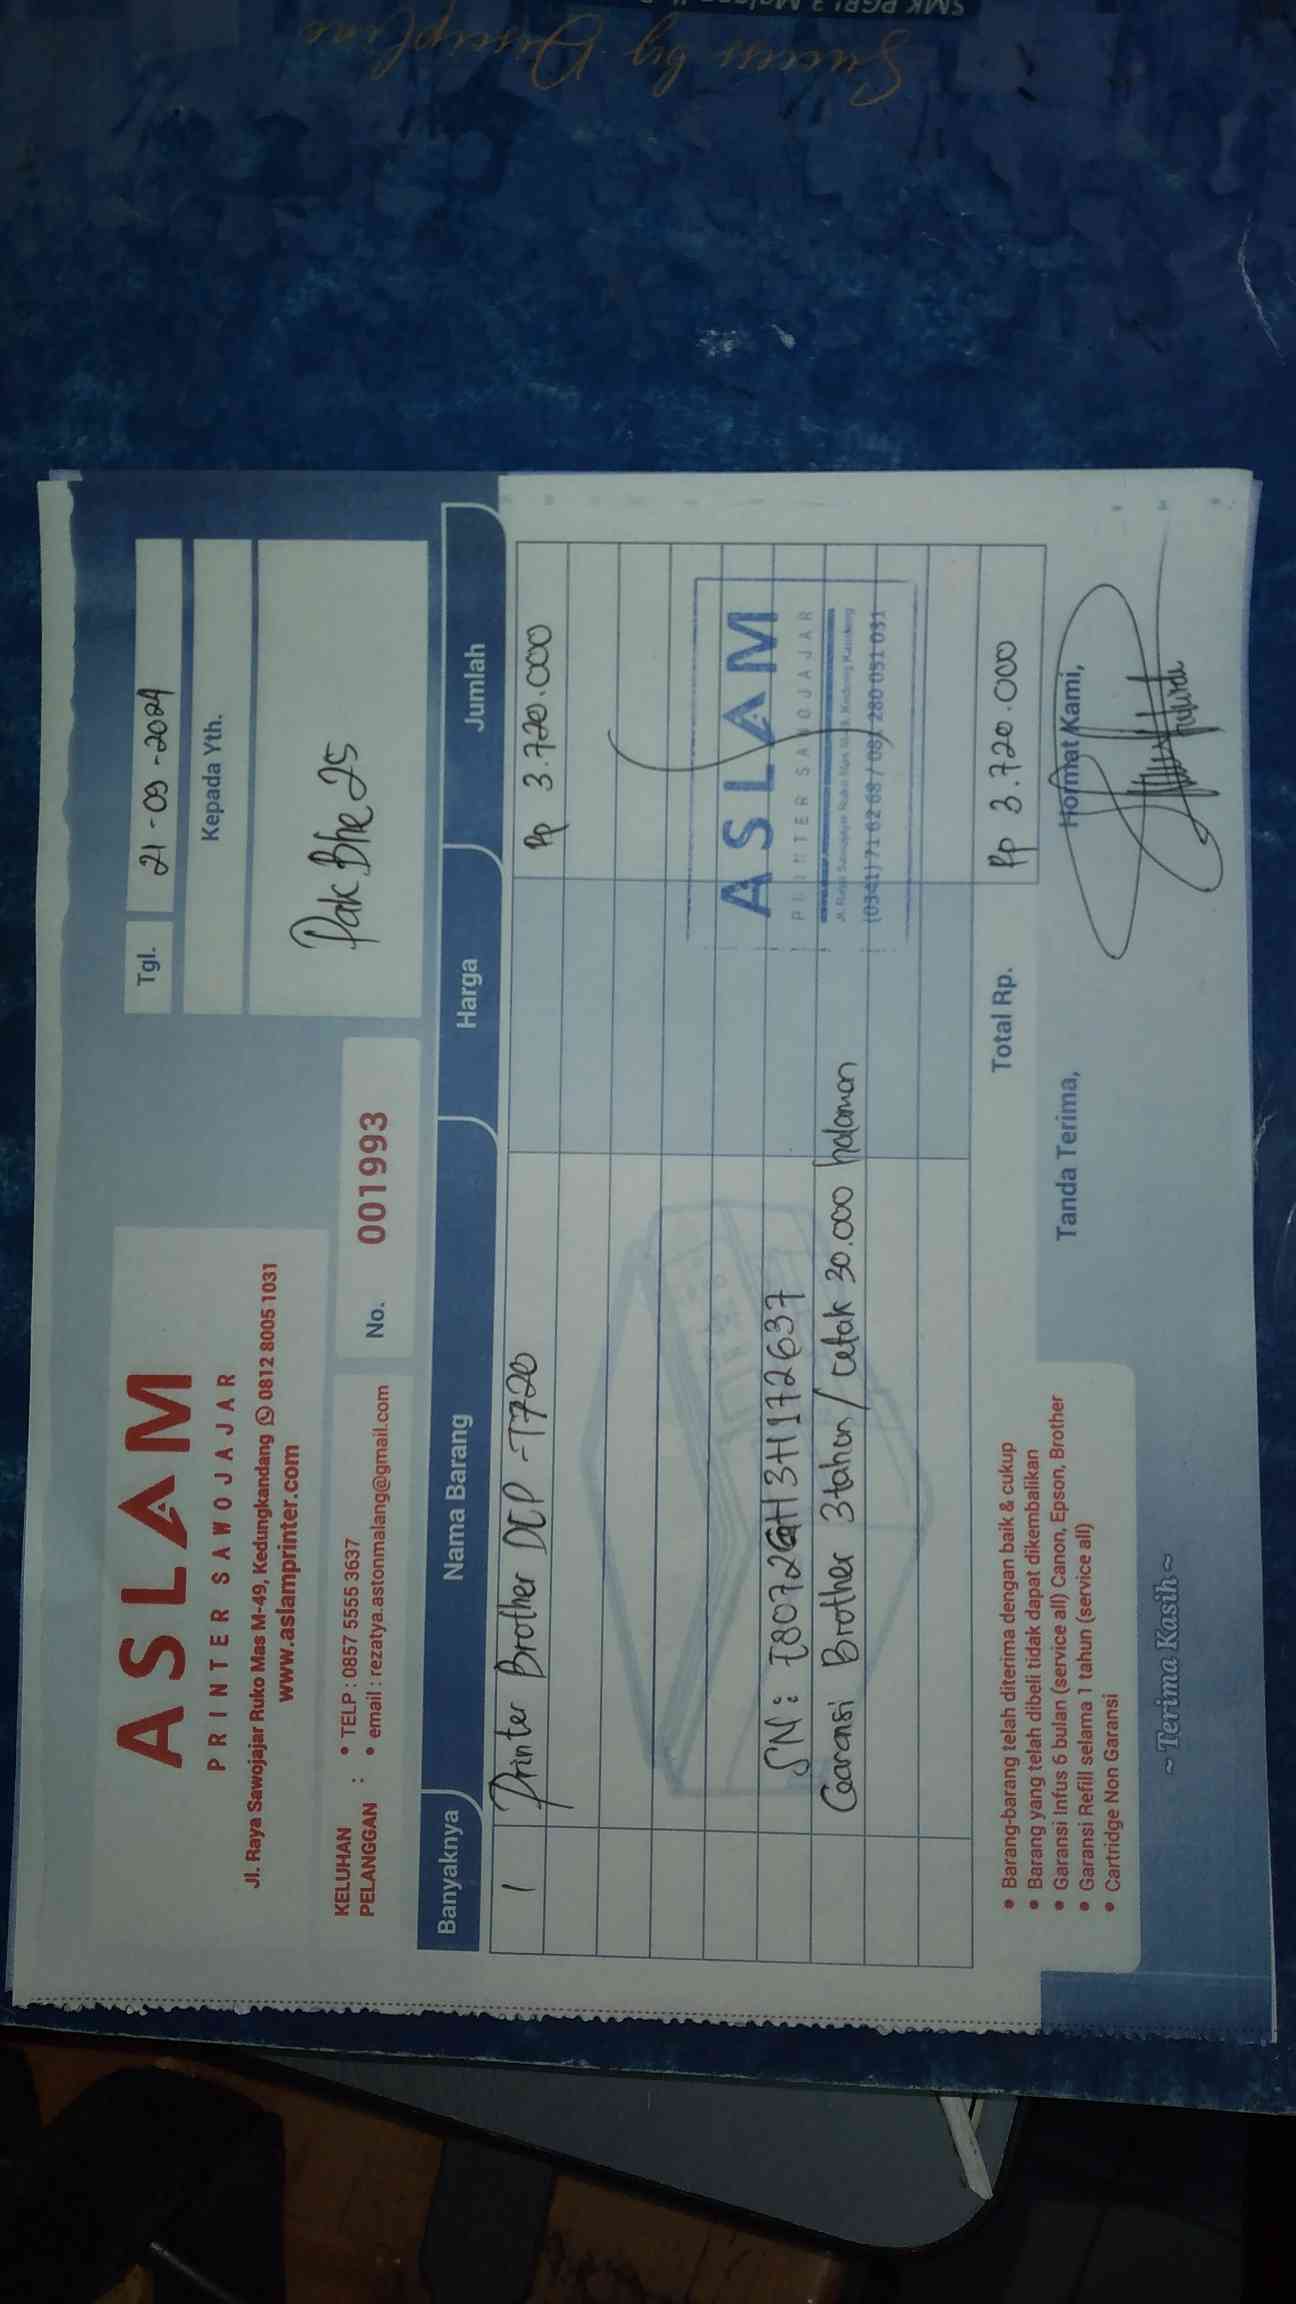 ASLAM
PRINTER SAWOJAJAR
Jl. Raya Sawojajar Ruko Mas M-49, Kedungkandang 0812 8005 1031
www.aslamprinter.com
Tgl. 21-09-2024
Kepada Yth.
Pak Bhe 25
KELUHAN
PELANGGAN :
• TELP : 0857 5555 3637
• email : rezatya.astonmalang@gmail.com
No. 001993
Banyaknya Nama Barang Harga Jumlah
1 Printer Brother DCP-T720 Rp 3.720.000
SN: E80726H3H172637
Garansi Brother 3 tahun / cetak 30.000 halaman
ASLAM
PRINTER SAWOJAJAR
(0341) 71 62 68 / 081 280 051 031
Total Rp. Rp 3.720.000
• Barang-barang telah diterima dengan baik & cukup
• Barang yang telah dibeli tidak dapat dikembalikan
• Garansi Infus 6 bulan (service all) Canon, Epson, Brother
• Garansi Refill selama 1 tahun (service all)
• Cartridge Non Garansi
Tanda Terima,
Hormat Kami,
~ Terima Kasih ~
Success by Discipline
SMK PGRI 3